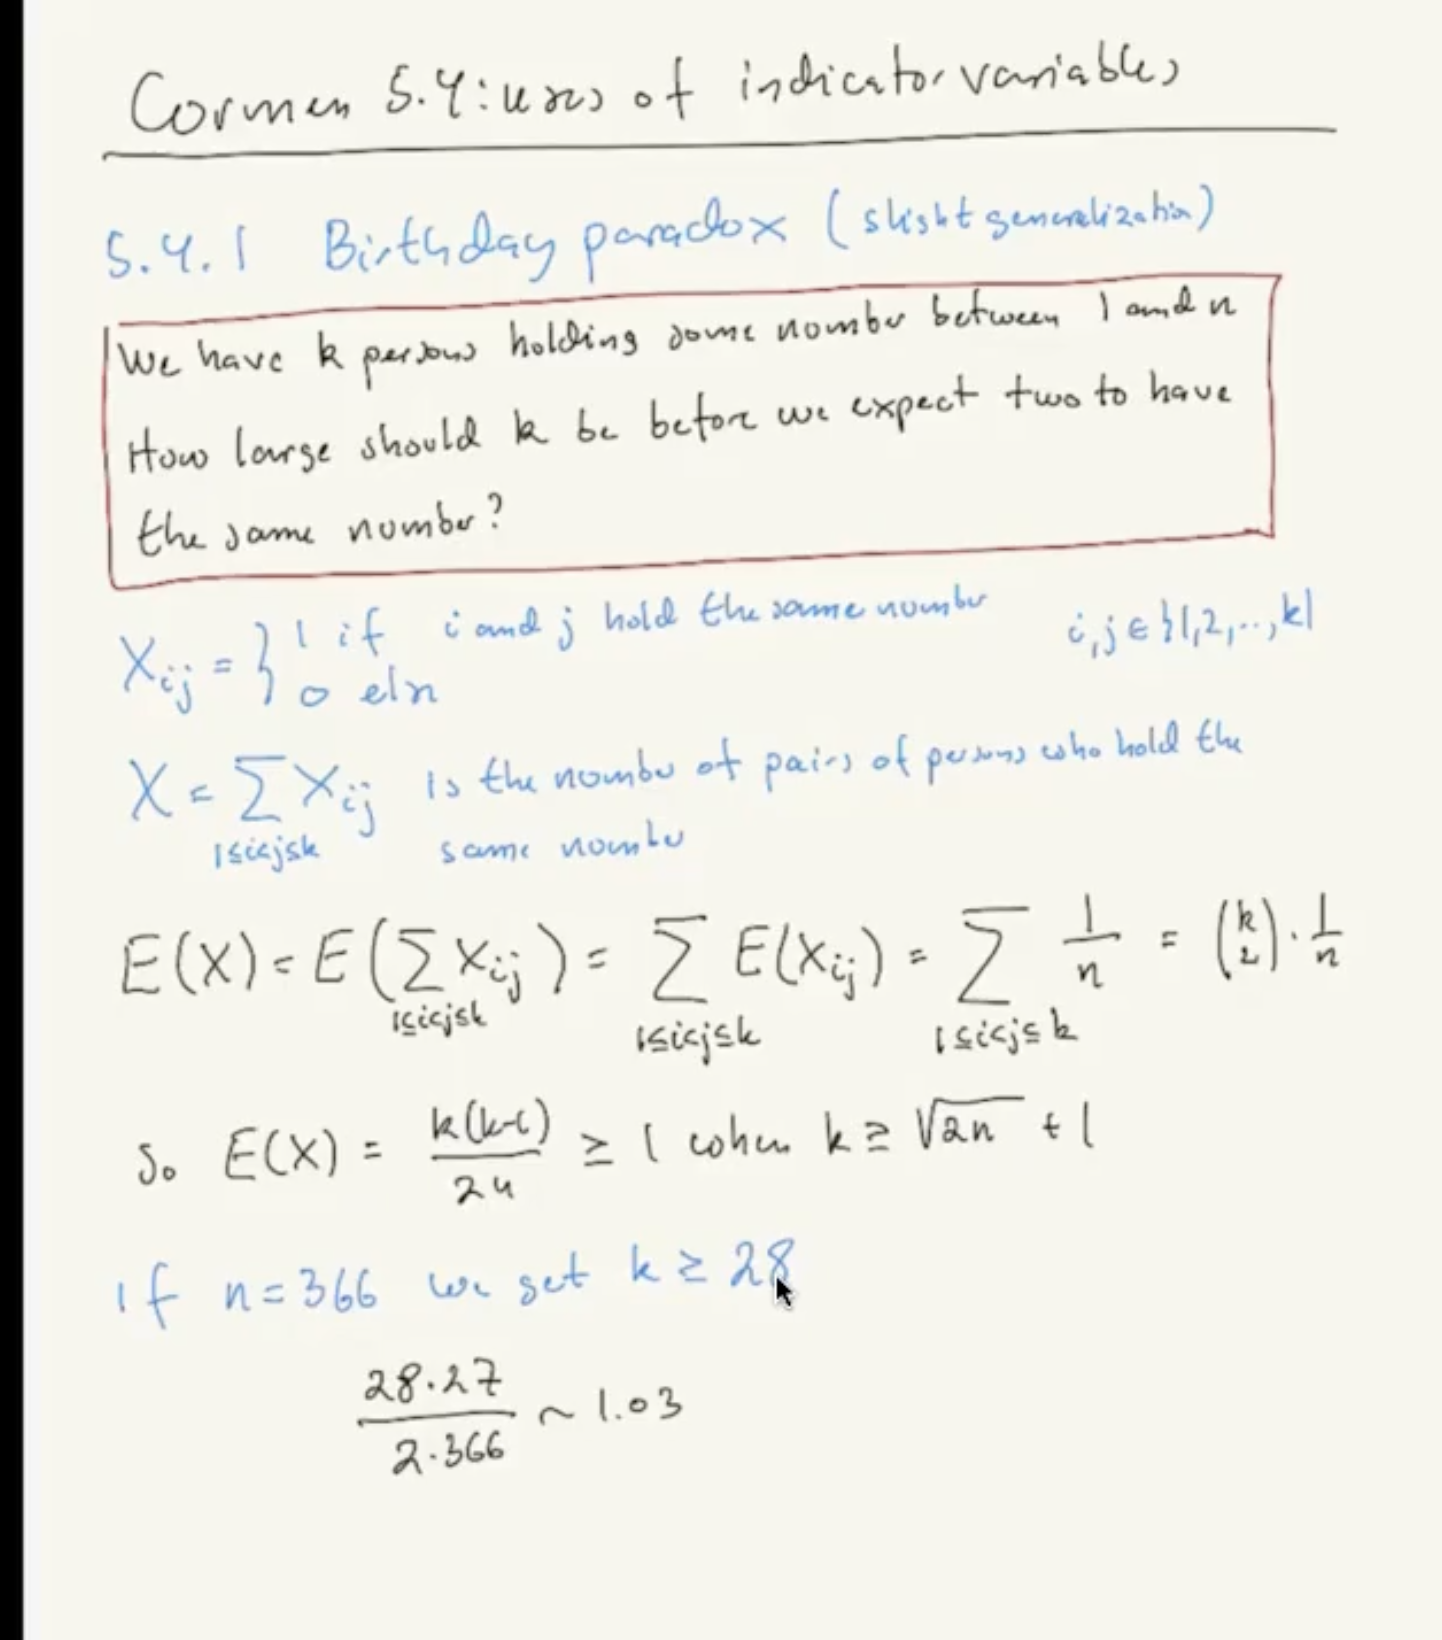 Cormen 5.4: uses of indicator variables
5.4.1 Birthday paradox (slight generalization)
We have k persons holding some number between 1 and n
How large should k be before we expect two to have
the same number?
X_ij = { 1 if i and j hold the same number i,j ∈ {1,2,..,k}
0 else
X = Σ X_ij is the number of pairs of persons who hold the
1≤i<j≤k same number
E(X) = E(Σ X_ij) = Σ E(X_ij) = Σ 1/n = (k 2) · 1/n
1≤i<j≤k 1≤i<j≤k 1≤i<j≤k
So E(X) = k(k-1)/2n ≥ 1 when k ≥ √2n + 1
If n = 366 we get k ≥ 28
28·27/2·366 ~ 1.03